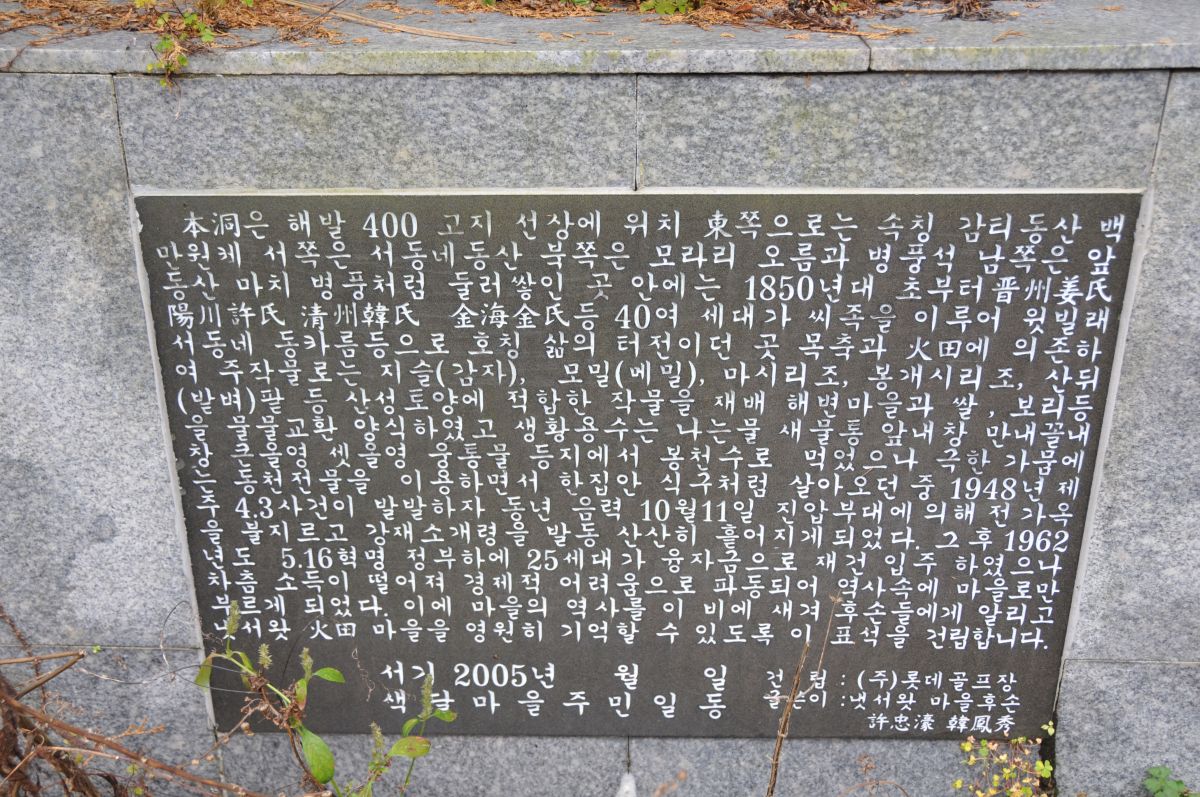 本洞은 해발 400 고지 선상에 위치 東쪽으로는 속칭 감티동산 백
마원케 서쪽은 서동네동산 북쪽은 모라리 오름과 병풍석 남쪽은 앞
동산 마치 병풍처럼 둘러쌓인 곳 안에는 1850년대 초부터 晋州姜氏
陽川許氏 清州韓氏 金海金氏등 40여 세대가 씨족을 이루어 윗빌래
서동네 동카름등으로 호칭 삶의 터전이던 곳 목축과 火田에 의존하
여 주작물로는 지슬(감자), 모밀(메밀), 마시리조, 봉개시리조, 산뒤
(밭벼)팥 등 산성토양에 적합한 작물을 재배 해변마을과 쌀, 보리등
을 물물교환 양식하였고 생활용수는 나는물 새물통 앞내창 만내꼴내
창 큰울영 셋울영 웅통물등지에서 봉천수로 먹었으나 극한 가뭄에
는 동천전물을 이용하면서 한집안 식구처럼 살아오던 중 1948년 제
주 4.3사건이 발발하자 동년 음력 10월11일 진압부대에 의해 전 가옥
을 불지르고 강재소개령을 발동 산산히 흩어지게 되었다. 그 후 1962
년도 5.16혁명 정부하에 25세대가 융자금으로 재건 입주 하였으나
차츰 소득이 떨어져 경제적 어려움으로 파동되어 역사속에 마을로만
부르게 되었다. 이에 마을의 역사를 이 비에 새겨 후손들에게 알리고
냇서왓 火田 마을을 영원히 기억할 수 있도록 이 표석을 건립합니다.
서기 2005년 월 일 건 립 : (주)롯데골프장
색달마을주민일동 글쓴이 : 냇서왓 마을후손
許忠濠 韓鳳秀